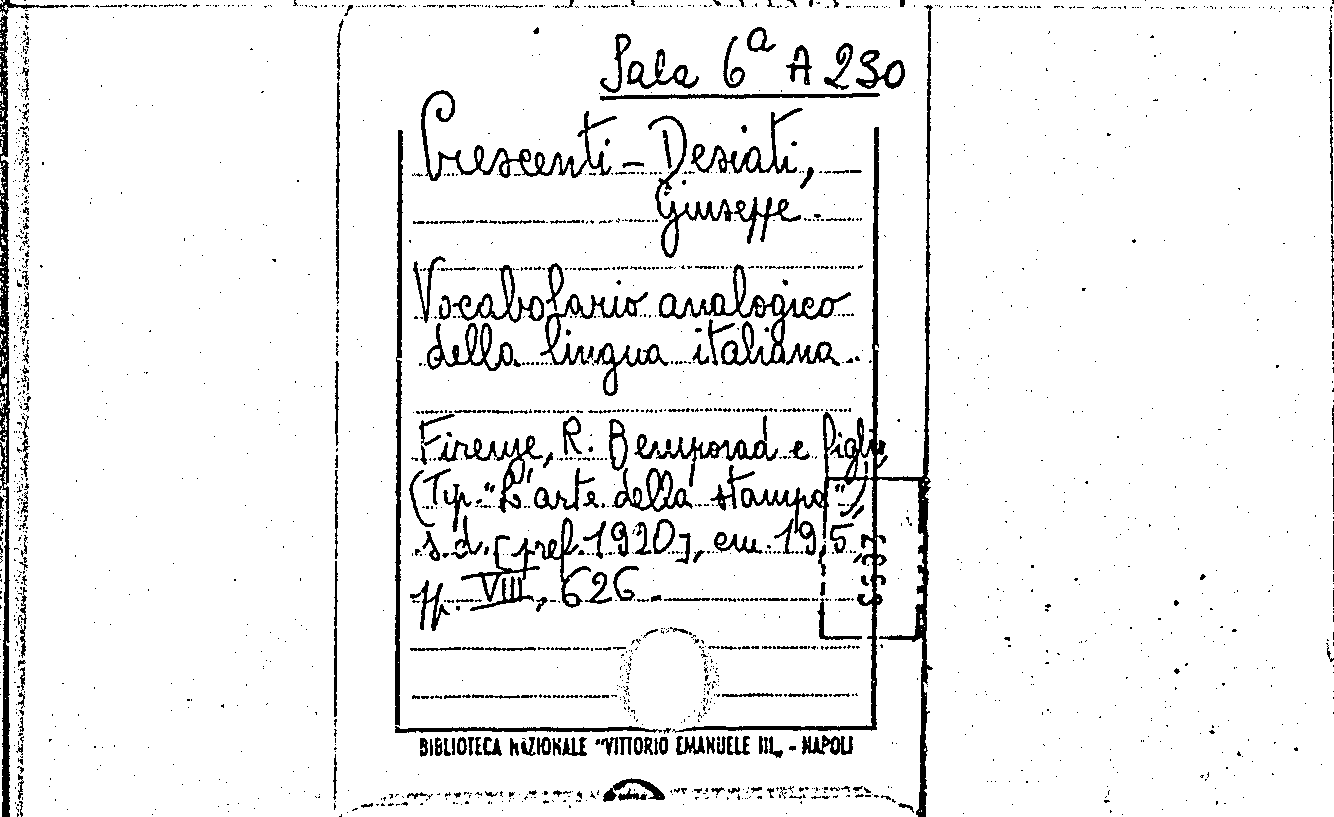 Sala 6ª A 230
Crescenti-Desiati,
Giuseppe.
Vocabolario analogico
della lingua italiana.
Firenze, R. Bemporad e figlio,
(Tip. "L'arte della stampa"),
s.d. [pref. 1920], cm. 19,5,
pp. VIII, 626.
BIBLIOTECA NAZIONALE "VITTORIO EMANUELE III„ - NAPOLI